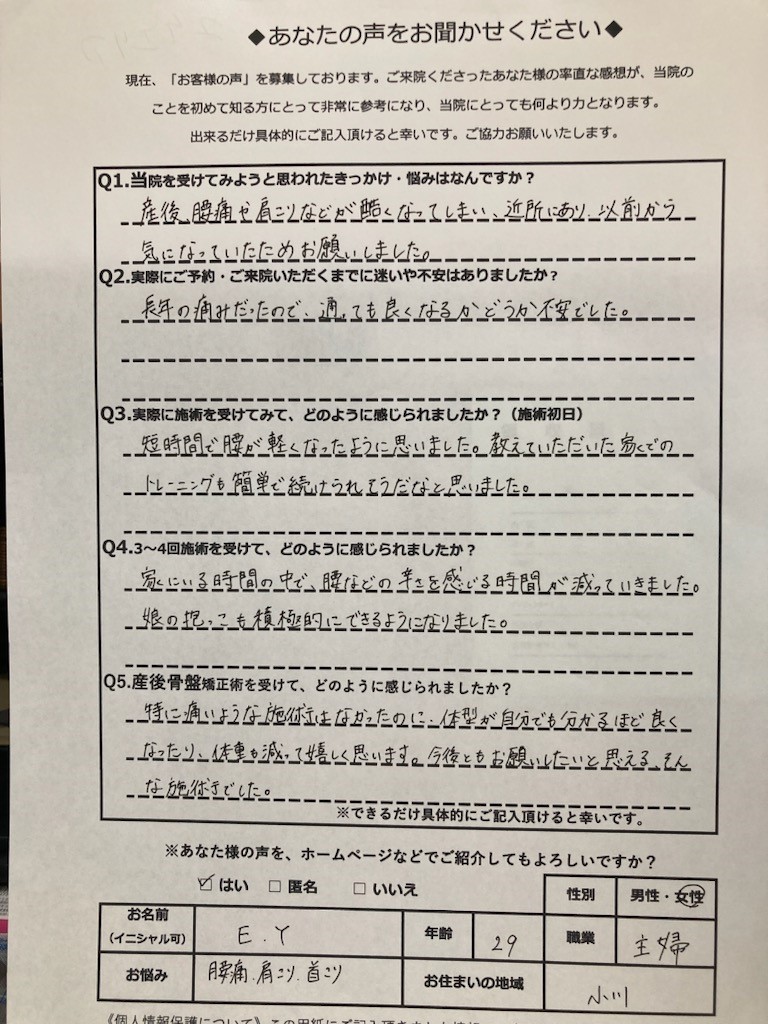 ◆あなたの声をお聞かせください◆
現在、「お客様の声」を募集しております。ご来院くださったあなた様の率直な感想が、当院の
ことを初めて知る方にとって非常に参考になり、当院にとっても何より力となります。
出来るだけ具体的にご記入頂けると幸いです。ご協力お願いいたします。
Q1.当院を受けてみようと思われたきっかけ・悩みはなんですか？
産後、腰痛や肩こりなどが酷くなってしまい、近所にあり、以前から
気になっていたためお願いしました。
Q2.実際にご予約・ご来院いただくまでに迷いや不安はありましたか？
長年の痛みだったので、通っても良くなるかどうか不安でした。
Q3.実際に施術を受けてみて、どのように感じられましたか？（施術初日）
短時間で腰が軽くなったように思いました。教えていただいた家での
トレーニングも簡単で続けられそうだなと思いました。
Q4.3～4回施術を受けて、どのように感じられましたか？
家にいる時間の中で、腰などの辛さを感じる時間が減っていきました。
娘の抱っこも積極的にできるようになりました。
Q5.産後骨盤矯正術を受けて、どのように感じられましたか？
特に痛いような施術はなかったのに、体型が自分でも分かるほど良く
なったり、体重も減って嬉しく思います。今後ともお願いしたいと思える、そん
な施術でした。
※できるだけ具体的にご記入頂けると幸いです。
※あなた様の声を、ホームページなどでご紹介してもよろしいですか？
☑ はい □ 匿名 □ いいえ
性別 男性・女性
お名前（イニシャル可） E.Y 年齢 29 職業 主婦
お悩み 腰痛、肩こり、首こり お住まいの地域 小川
《個人情報保護について》この用紙にご記入頂きました情報